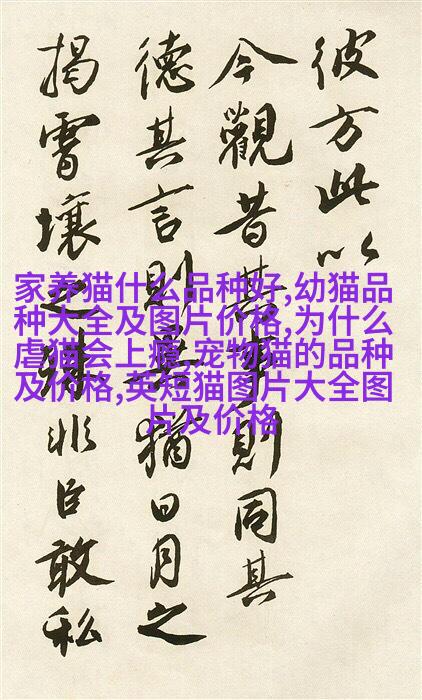 彼方此以
今觀昔其事則同其
德其言則猶日月之
揭霄壤之非臣敢私
家养猫什么品种好,幼猫品
种大全及图片价格,为什么
虐猫会上瘾,宠物猫的品种
及价格,英短猫图片大全图
片及价格